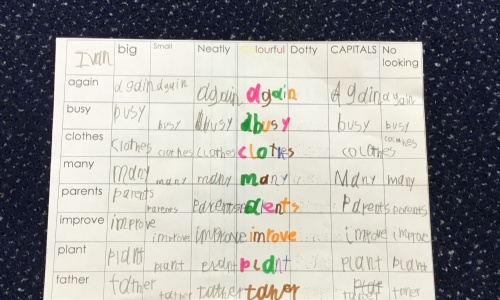 Ivan big Small Neatly Colourful Dotty CAPITALS No looking
again again again again again Again again
busy busy busy busy dbusy busy busy
clothes clothes clothes clothes clothes colothes
many many many many many Many many
parents parents parents parents Parents parents
improve improve improve improve improve improve improve
plant plant plant plant plant plant
father father father father